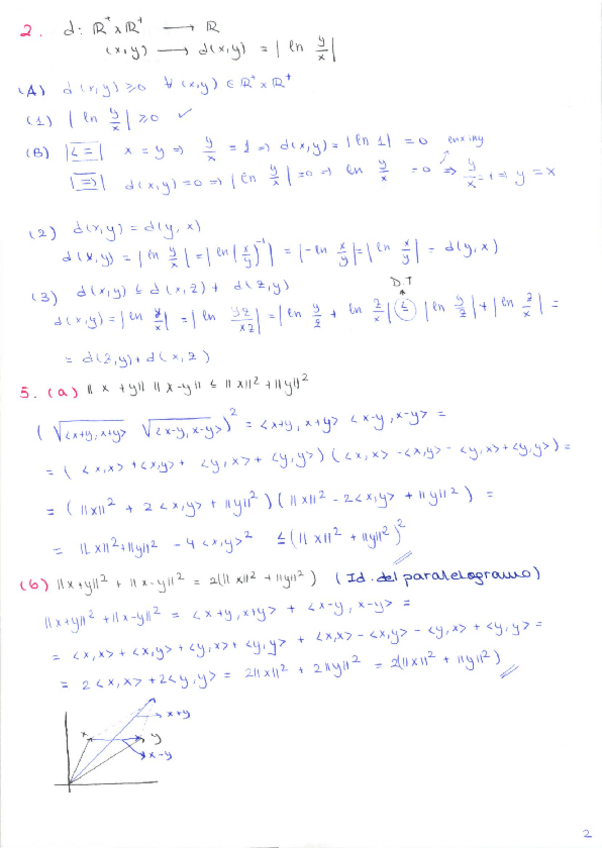 2. d: ℝ⁺ x ℝ⁺ ⟶ ℝ
(x,y) ⟶ d(x,y) = | ln y/x |
(A) d(x,y) ≥ 0 ∀ (x,y) ∈ ℝ⁺ x ℝ⁺
(1) | ln y/x | ≥ 0 ✓
(B) |<=| x = y => y/x = 1 => d(x,y) = | ln 1 | = 0
|=>| d(x,y) = 0 => | ln y/x | = 0 => ln y/x = 0 => y/x = 1 => y = x
(2) d(x,y) = d(y,x)
d(x,y) = | ln y/x | = | ln (x/y)⁻¹ | = | - ln x/y | = | ln x/y | = d(y,x)
(3) d(x,y) ≤ d(x,z) + d(z,y)
D.T
d(x,y) = | ln y/x | = | ln yz/xz | = | ln y/z + ln z/x | ≤ | ln y/z | + | ln z/x | =
= d(z,y) + d(x,z)
5. (a) ||x+y|| ||x-y|| ≤ ||x||² + ||y||²
(√<x+y, x+y> √<x-y, x-y>)² = <x+y, x+y> <x-y, x-y> =
= (<x,x> + <x,y> + <y,x> + <y,y>) (<x,x> - <x,y> - <y,x> + <y,y>) =
= (||x||² + 2<x,y> + ||y||²) (||x||² - 2<x,y> + ||y||²) =
= ||x||² + ||y||² - 4<x,y>² ≤ (||x||² + ||y||²)²
(b) ||x+y||² + ||x-y||² = 2(||x||² + ||y||²) (Id. del paralelogramo)
||x+y||² + ||x-y||² = <x+y, x+y> + <x-y, x-y> =
= <x,x> + <x,y> + <y,x> + <y,y> + <x,x> - <x,y> - <y,x> + <y,y> =
= 2<x,x> + 2<y,y> = 2||x||² + 2||y||² = 2(||x||² + ||y||²)
x+y
x
y
x-y
2